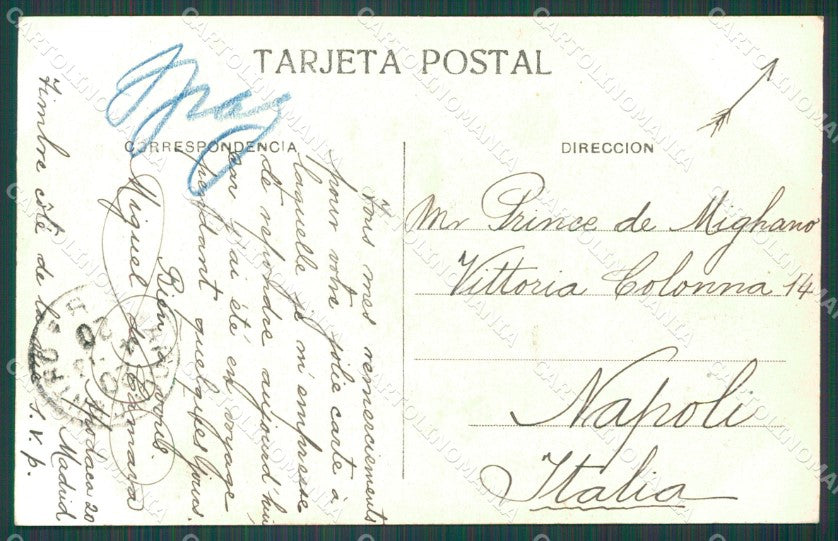 TARJETA POSTAL
CORRESPONDENCIA
DIRECCION
Mr Prince de Mighano
Vittoria Colonna 14
Napoli
Italia
Tous mes remerciements
pour votre jolie carte à
laquelle je m'empresse
de repondre aujourd'hui
car j'ai été en voyage
pendant quelques jours.
Bien à vous
Miguel de
20
Madrid
Timbre côté de la vue S.V.p.
CARTOLINOMANIA